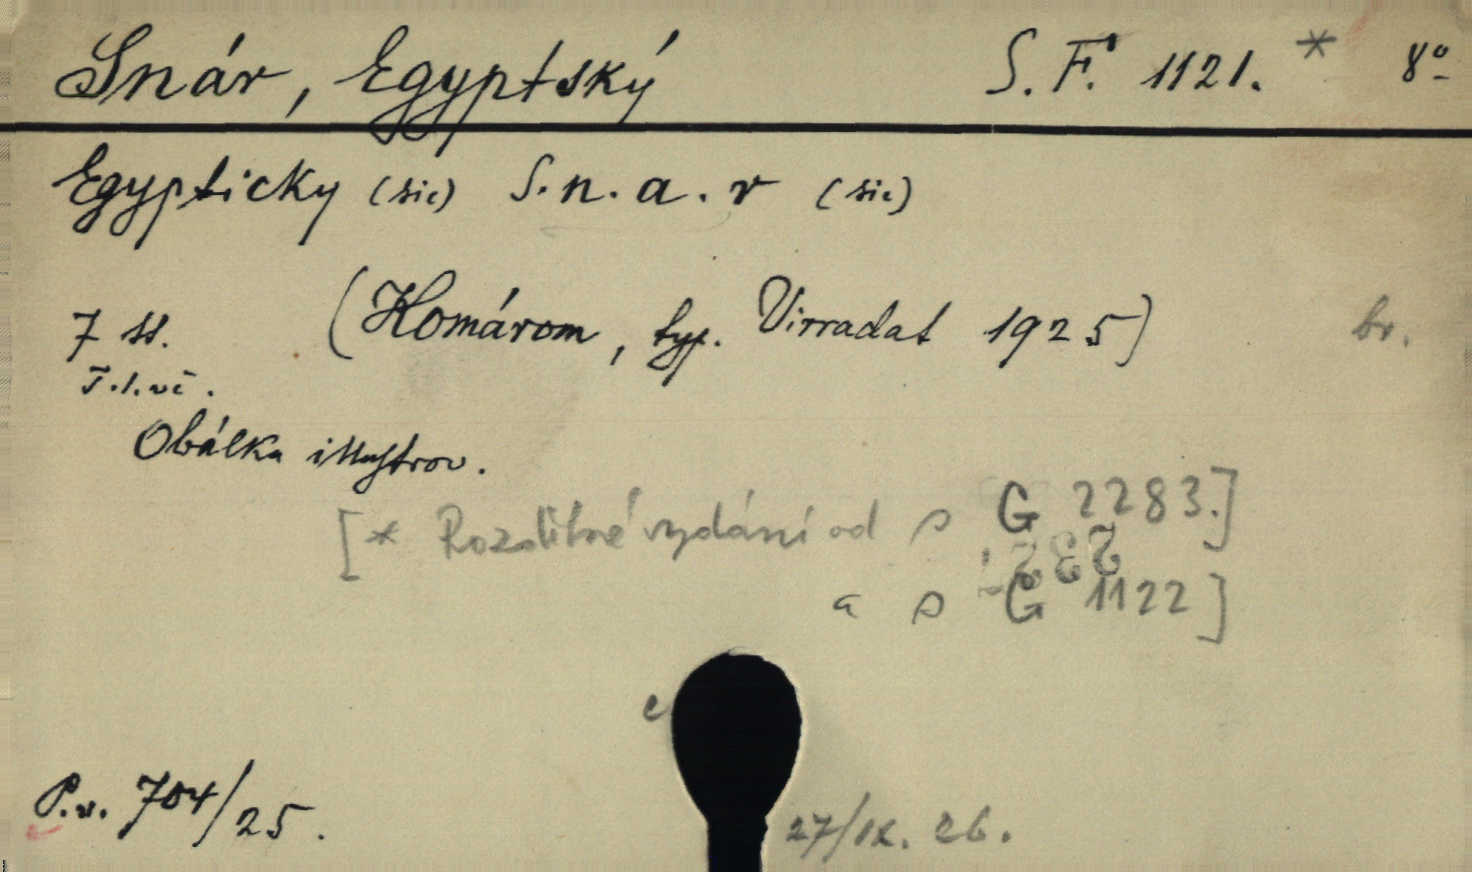 Snár, Egyptský S. F. 1121. * 8º
Egypticky (sic) S. n. a. r (sic)
7 st. (Komárom, typ. Virradat 1925) br.
F. l. vč.
Obálka illustrov.
[* Rozdílné vydání od s G 2283.]
a s G 1122]
c
P.v. 704/25.
27/IX. 26.